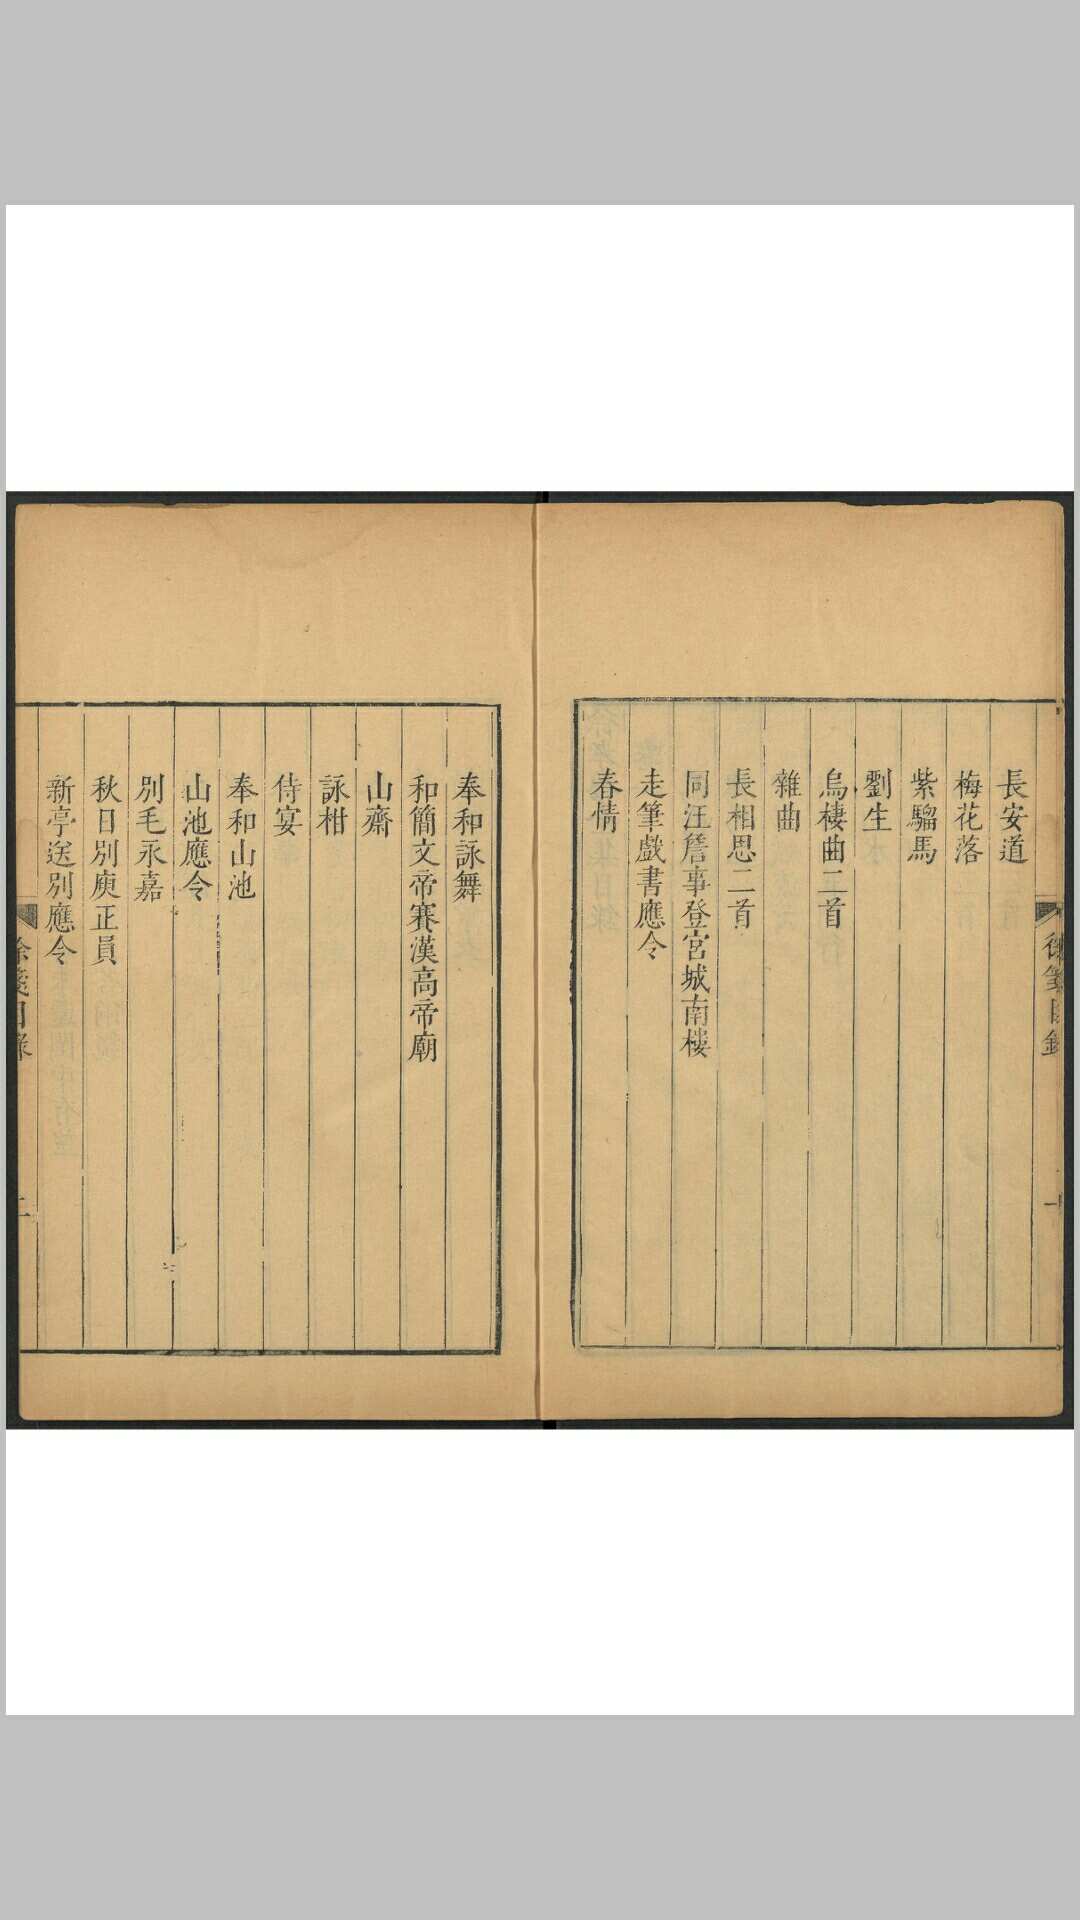 長安道
梅花落
紫騮馬
劉生
烏棲曲二首
雜曲
長相思二首
同汪詹事登宮城南樓
走筆戲書應令
春情
奉和詠舞
和簡文帝賽漢高帝廟
山齋
詠柑
侍宴
奉和山池
山池應令
別毛永嘉
秋日別庾正員
新亭送別應令